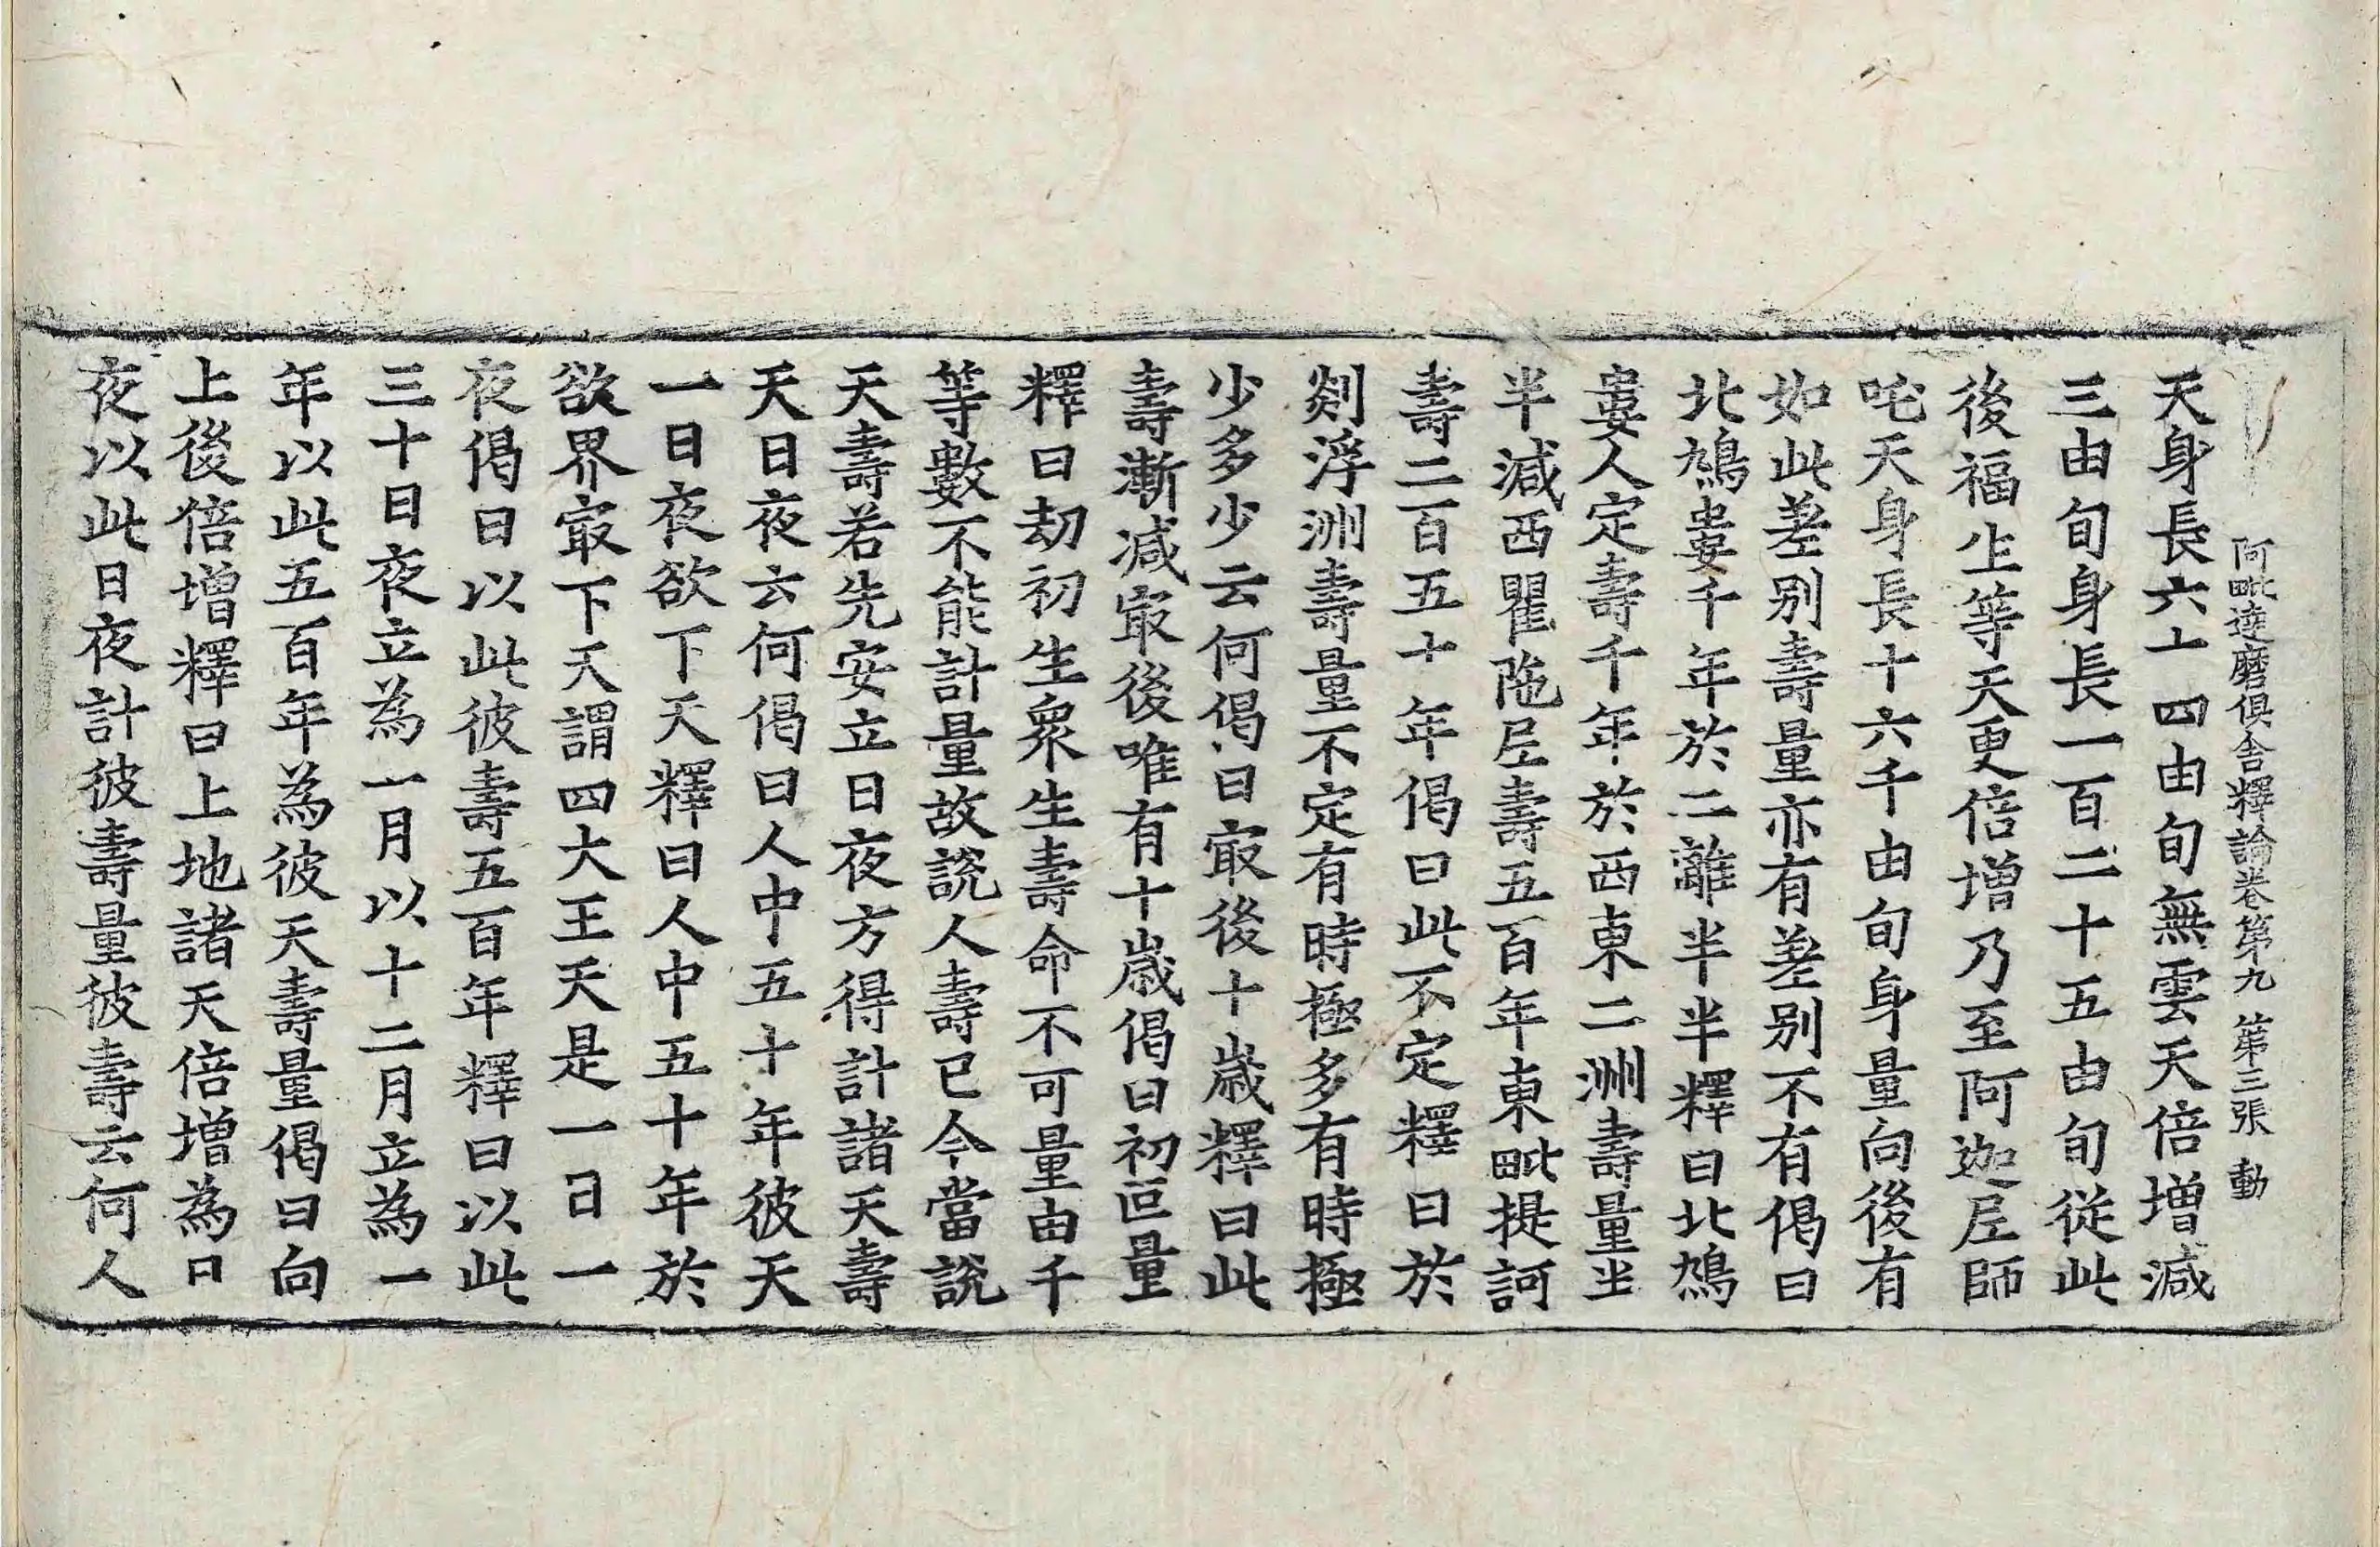 阿毗達磨俱舍釋論卷第九 第三張 動
天身長六十四由旬無雲天倍增減
三由旬身長一百二十五由旬從此
後福生等天更倍增乃至阿迦尼師
吒天身長十六千由旬身量向後有
如此差别壽量亦有差别不有偈曰
北鳩婁千年於二離半半釋曰北鳩
婁人定壽千年於西東二洲壽量㘴
半減西瞿陁尼壽五百年東毗提訶
壽二百五十年偈曰此不定釋曰於
剡浮洲壽量不定有時極多有時極
少多少云何偈曰㝡後十歲釋曰此
壽漸減㝡後唯有十歲偈曰初叵量
釋曰劫初生衆生壽命不可量由千
等數不能計量故說人壽已今當說
天壽若先安立日夜方得計諸天壽
天日夜云何偈曰人中五十年彼天
一日夜欲下天釋曰人中五十年於
欲界㝡下天謂四大王天是一日一
夜偈曰以此彼壽五百年釋曰以此
三十日夜立為一月以十二月立為一
年以此五百年為彼天壽量偈曰向
上後倍增釋曰上地諸天倍增為日
夜以此日夜計彼壽量彼壽云何人